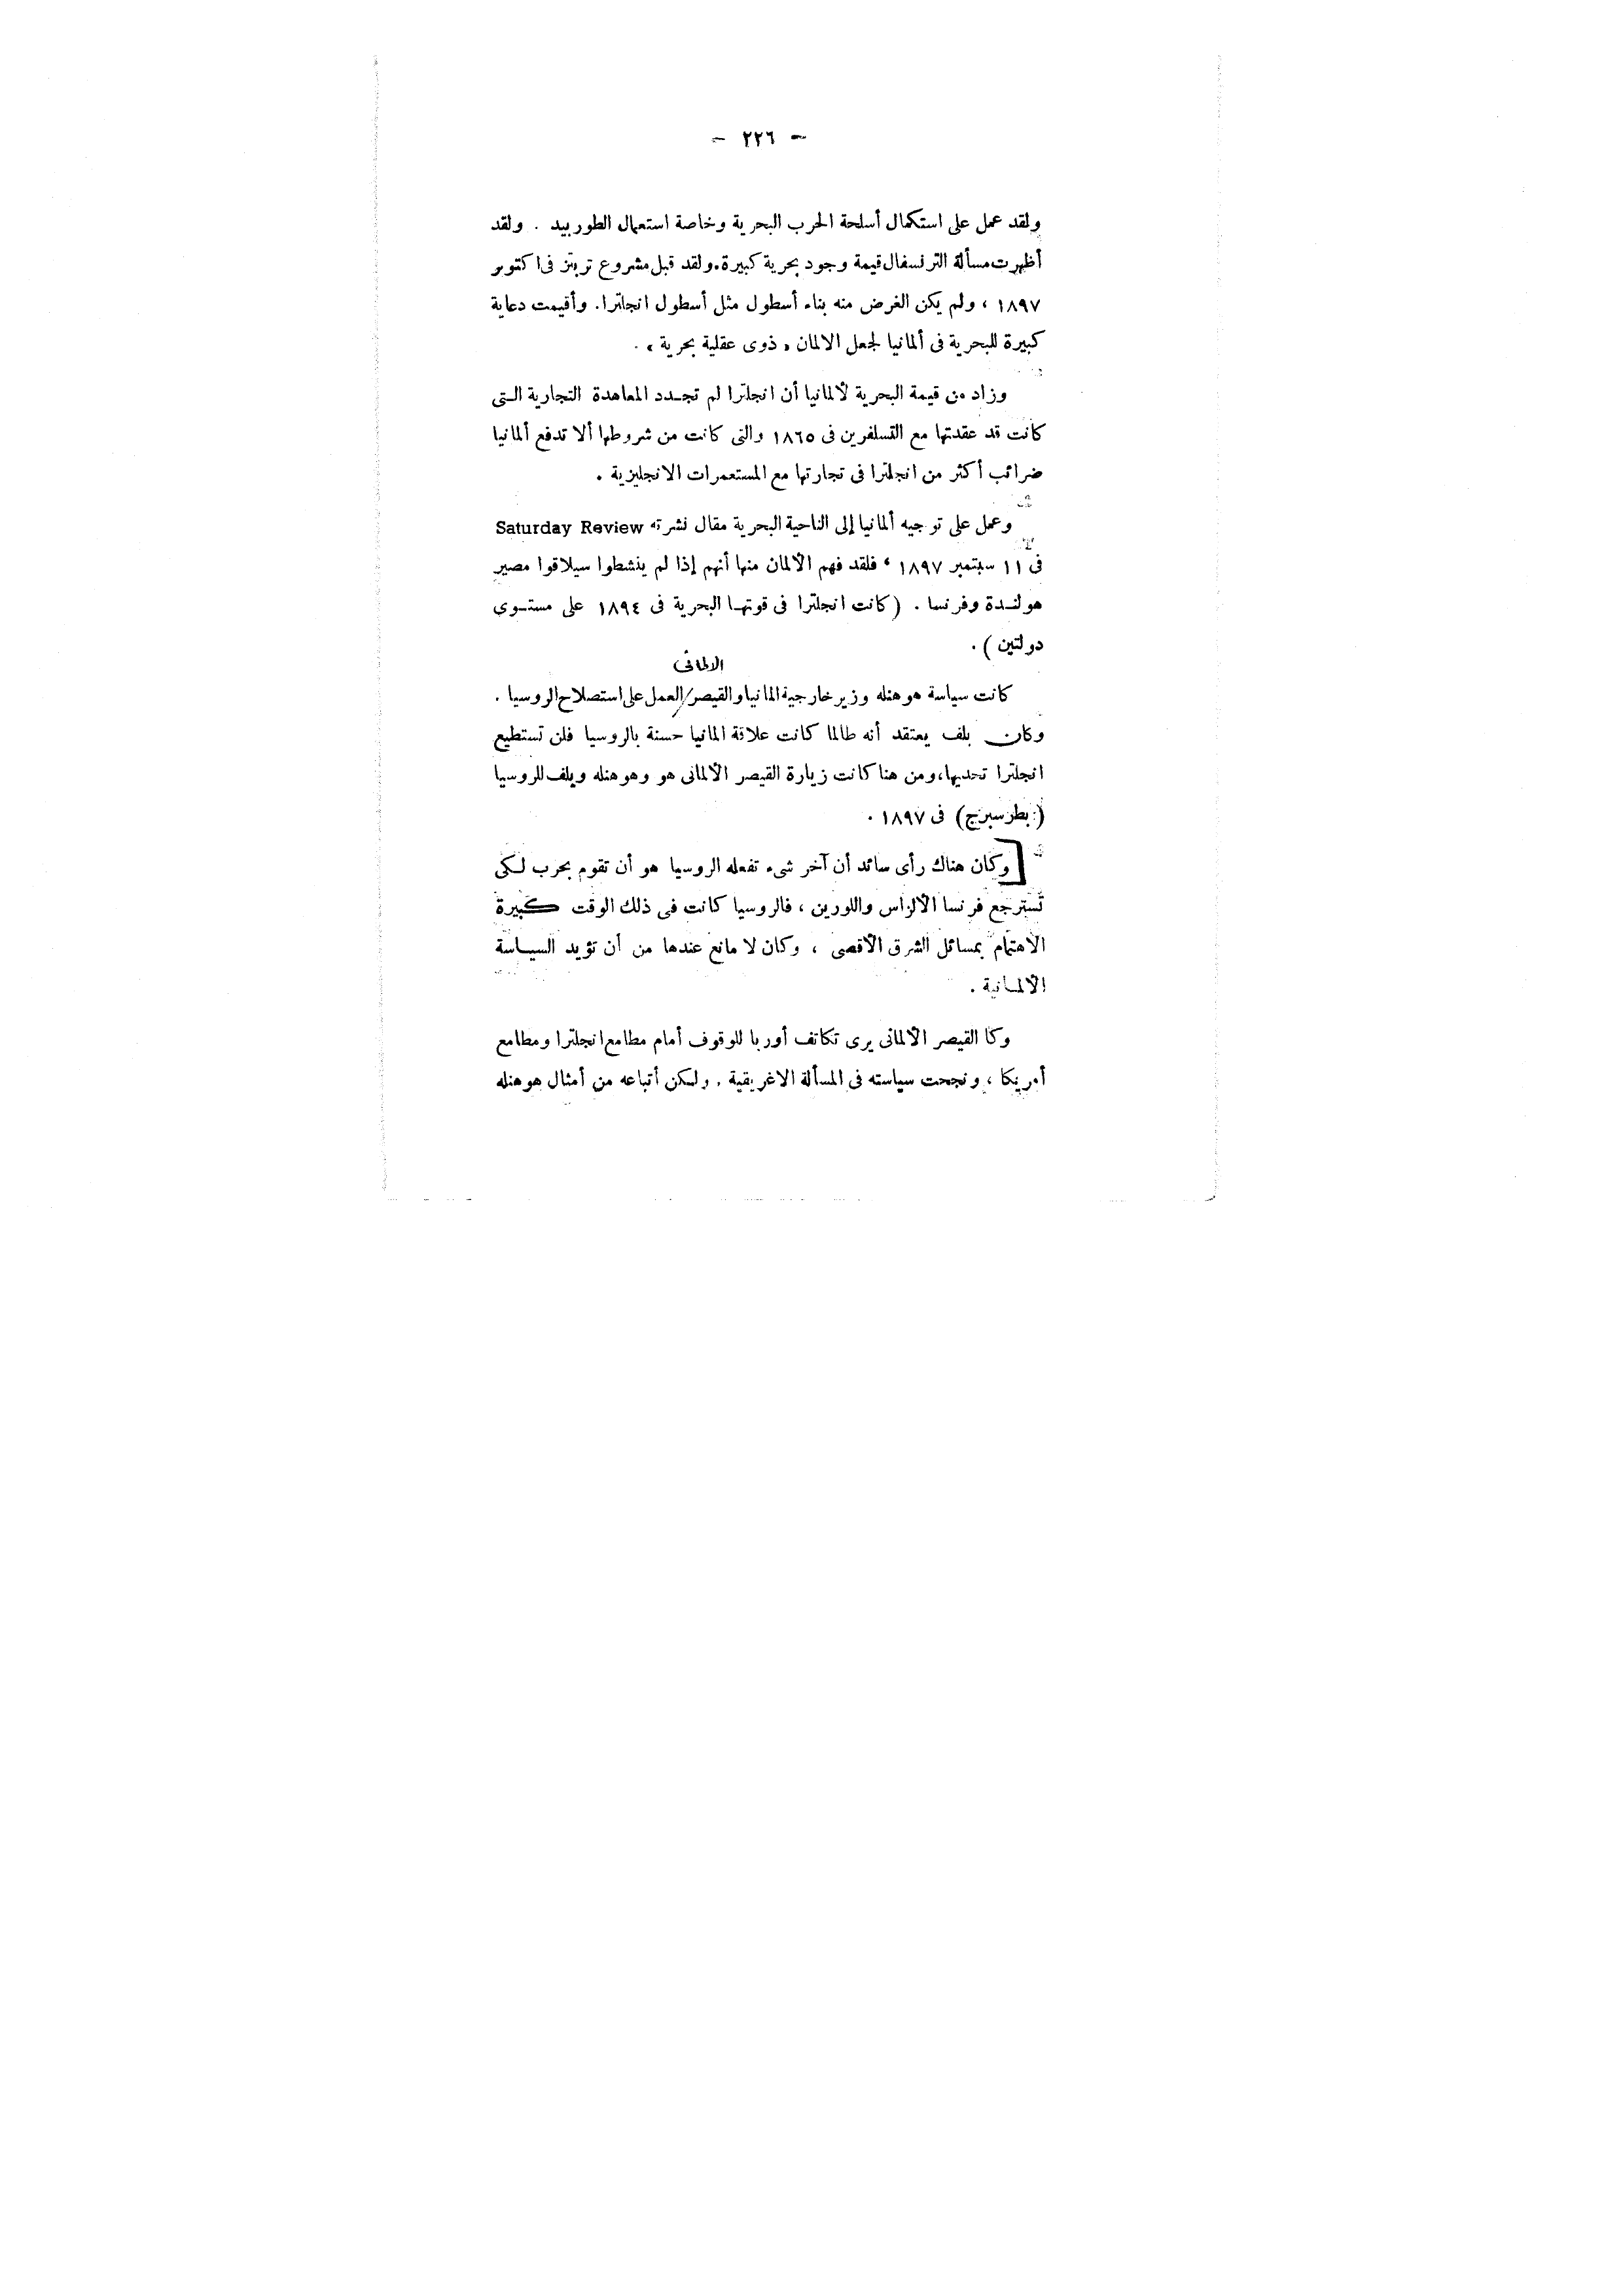 - ٢٢٦ -
ولقد عمل على استكمال أسلحة الحرب البحرية وخاصة استعمال الطوربيد . ولقد
أظهرت مسألة الترنسفال قيمة وجود بحرية كبيرة. ولقد قبل مشروع تربتز فى اكتوبر
١٨٩٧ ، ولم يكن الغرض منه بناء أسطول مثل أسطول انجلترا. وأقيمت دعاية
كبيرة للبحرية فى ألمانيا لجعل الالمان « ذوى عقلية بحرية » .
وزاد من قيمة البحرية لألمانيا أن انجلترا لم تجـدد المعاهدة التجارية الـتى
كانت قد عقدتها مع التسلفرين فى ١٨٦٥ والتى كانت من شروطها ألا تدفع ألمانيا
ضرائب أكثر من انجلترا فى تجارتها مع المستعمرات الانجليزية .
وعمل على توجيه ألمانيا إلى الناحية البحرية مقال نشرته Saturday Review
فى ١١ سبتمبر ١٨٩٧ ، فلقد فهم الألمان منها أنهم إذا لم ينشطوا سيلاقوا مصير
هولنـدة وفرنسا . (كانت انجلترا فى قوتهـا البحرية فى ١٨٩٤ على مستـوى
دولتين ) .
الالمانى
كانت سياسة هوهنله وزير خارجية المانيا والقيصر/العمل على استصلاح الروسيا .
وكان بلف يعتقد أنه طالما كانت علاقة المانيا حسنة بالروسيا فلن تستطيع
انجلترا تحديها، ومن هنا كانت زيارة القيصر الألمانى هو وهوهنله وبلف للروسيا
(بطرسبرج) فى ١٨٩٧ .
[وكان هناك رأى سائد أن آخر شىء تفعله الروسيا هو أن تقوم بحرب لـكى
تسترجع فرنسا الألزاس واللورين ، فالروسيا كانت فى ذلك الوقت كبيرة
الاهتمام بمسائل الشرق الأقصى ، وكان لا مانع عندها من أن تؤيد السيـاسة
الألمـانية .
وكا القيصر الألمانى يرى تكاتف أوربا للوقوف أمام مطامع انجلترا ومطامع
أمريكا ، ونجحت سياسته فى المسألة الاغريقية . ولـكن أتباعه من أمثال هوهنله